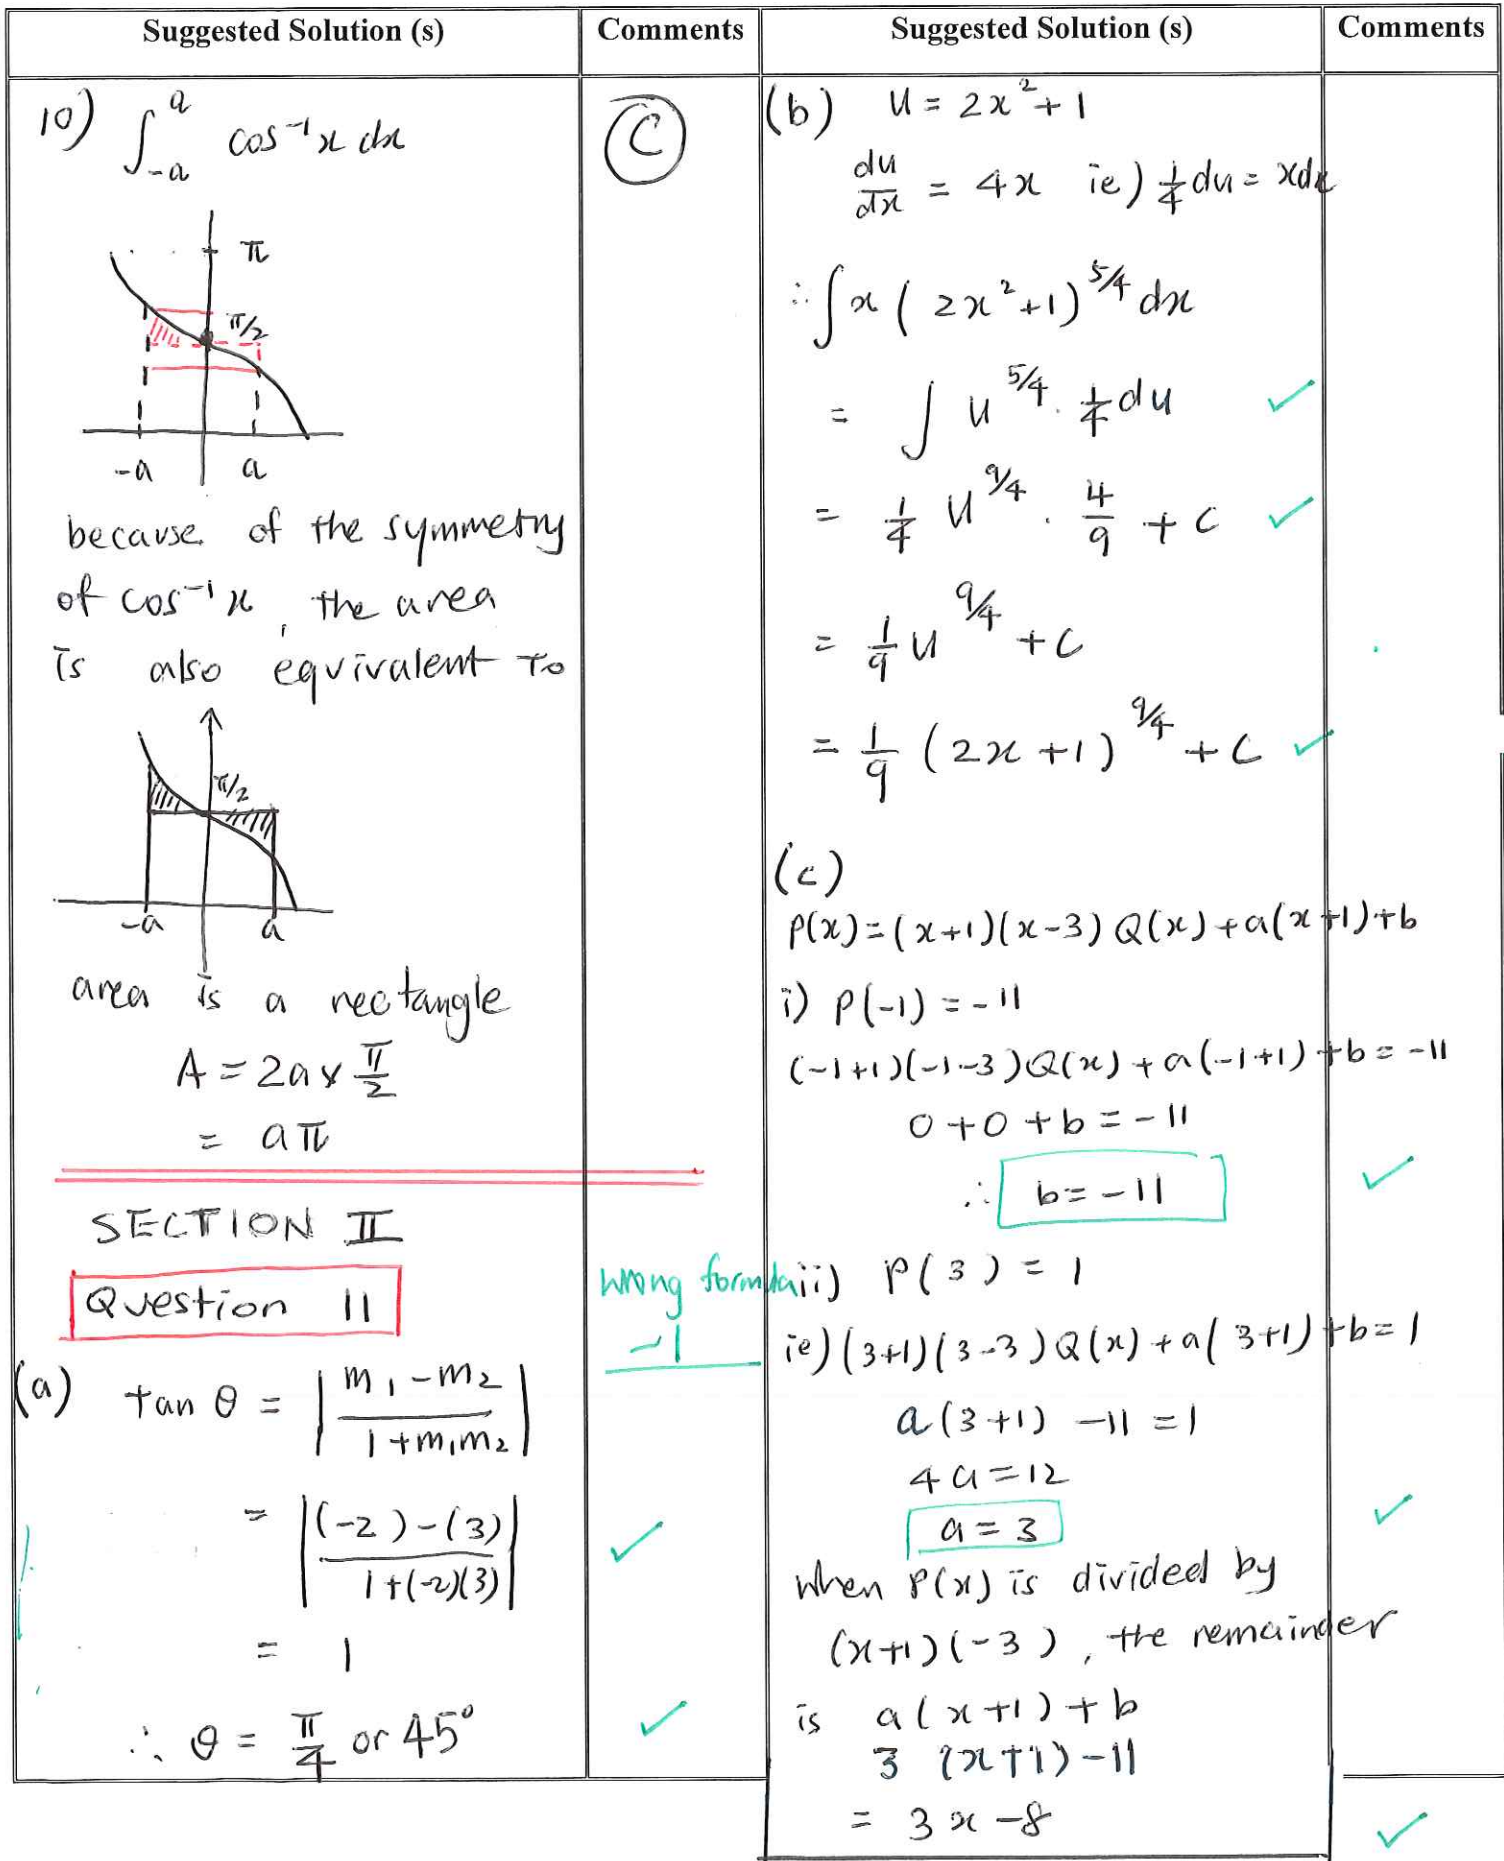 Suggested Solution (s)
Comments
10) ∫_{-a}^{a} cos⁻¹x dx
C
π
π/2
-a a
because of the symmetry
of cos⁻¹x, the area
is also equivalent to
π/2
-a a
area is a rectangle
A = 2a × π/2
= aπ
SECTION II
Question 11
wrong formula
-1
(a) tan θ = |(m₁-m₂)/(1+m₁m₂)|
= |((-2)-(3))/(1+(-2)(3))| ✓
= 1
∴ θ = π/4 or 45° ✓
Suggested Solution (s)
Comments
(b) u = 2x²+1
du/dx = 4x ie) 1/4 du = xdx
∴ ∫x(2x²+1)^{5/4} dx
= ∫ u^{5/4} · 1/4 du ✓
= 1/4 u^{9/4} · 4/9 + c ✓
= 1/9 u^{9/4} + c
= 1/9 (2x+1)^{9/4} + c ✓
(c)
P(x)=(x+1)(x-3)Q(x)+a(x+1)+b
i) P(-1) = -11
(-1+1)(-1-3)Q(x)+a(-1+1)+b=-11
0+0+b=-11
∴ b=-11 ✓
ii) P(3) = 1
ie) (3+1)(3-3)Q(x)+a(3+1)+b=1
a(3+1) -11 =1
4a=12
a=3 ✓
when P(x) is divided by
(x+1)(-3), the remainder
is a(x+1)+b
3 (x+1)-11
= 3x-8 ✓